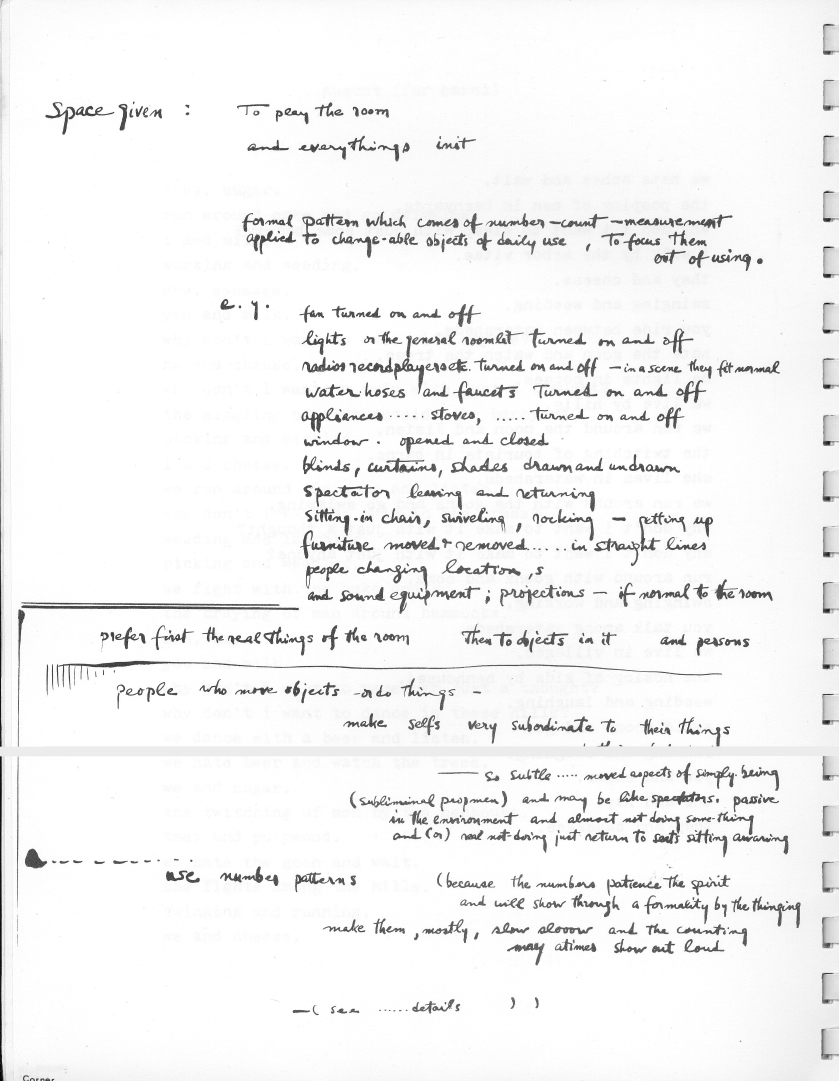 Space given : To peay the room
and everythings init
formal pattern which comes of number-count-measurement
applied to change-able objects of daily use , To focus them
out of using.
e. g. fan turned on and off
lights or the general roomlit turned on and off
radios recordplayers etc. turned on and off - in a scene they fit normal
water hoses and faucets Turned on and off
appliances ..... stoves, ..... turned on and off
window . opened and closed
blinds, curtains, shades drawn and undrawn
Spectator leaving and returning
Sitting-in chair, swiveling, rocking - getting up
furniture moved & removed ...... in straight lines
people changing location, s
and sound equipment ; projections - if normal to the room
prefer first the real things of the room Then to objects in it and persons
people who move objects - or do things
make selfs very subordinate to their things
So subtle ..... moved aspects of simply being
(subliminal propmen) and may be like spectators. passive
in the environment and almost not doing some-thing
and (or) real not-doing just return to seats sitting awaring
use number patterns (because the numbers patience the spirit
and will show through a formality by the thinging
make them, mostly, slow slooow and the counting
may atimes show out loud
-( see ...... details ) )
Corner